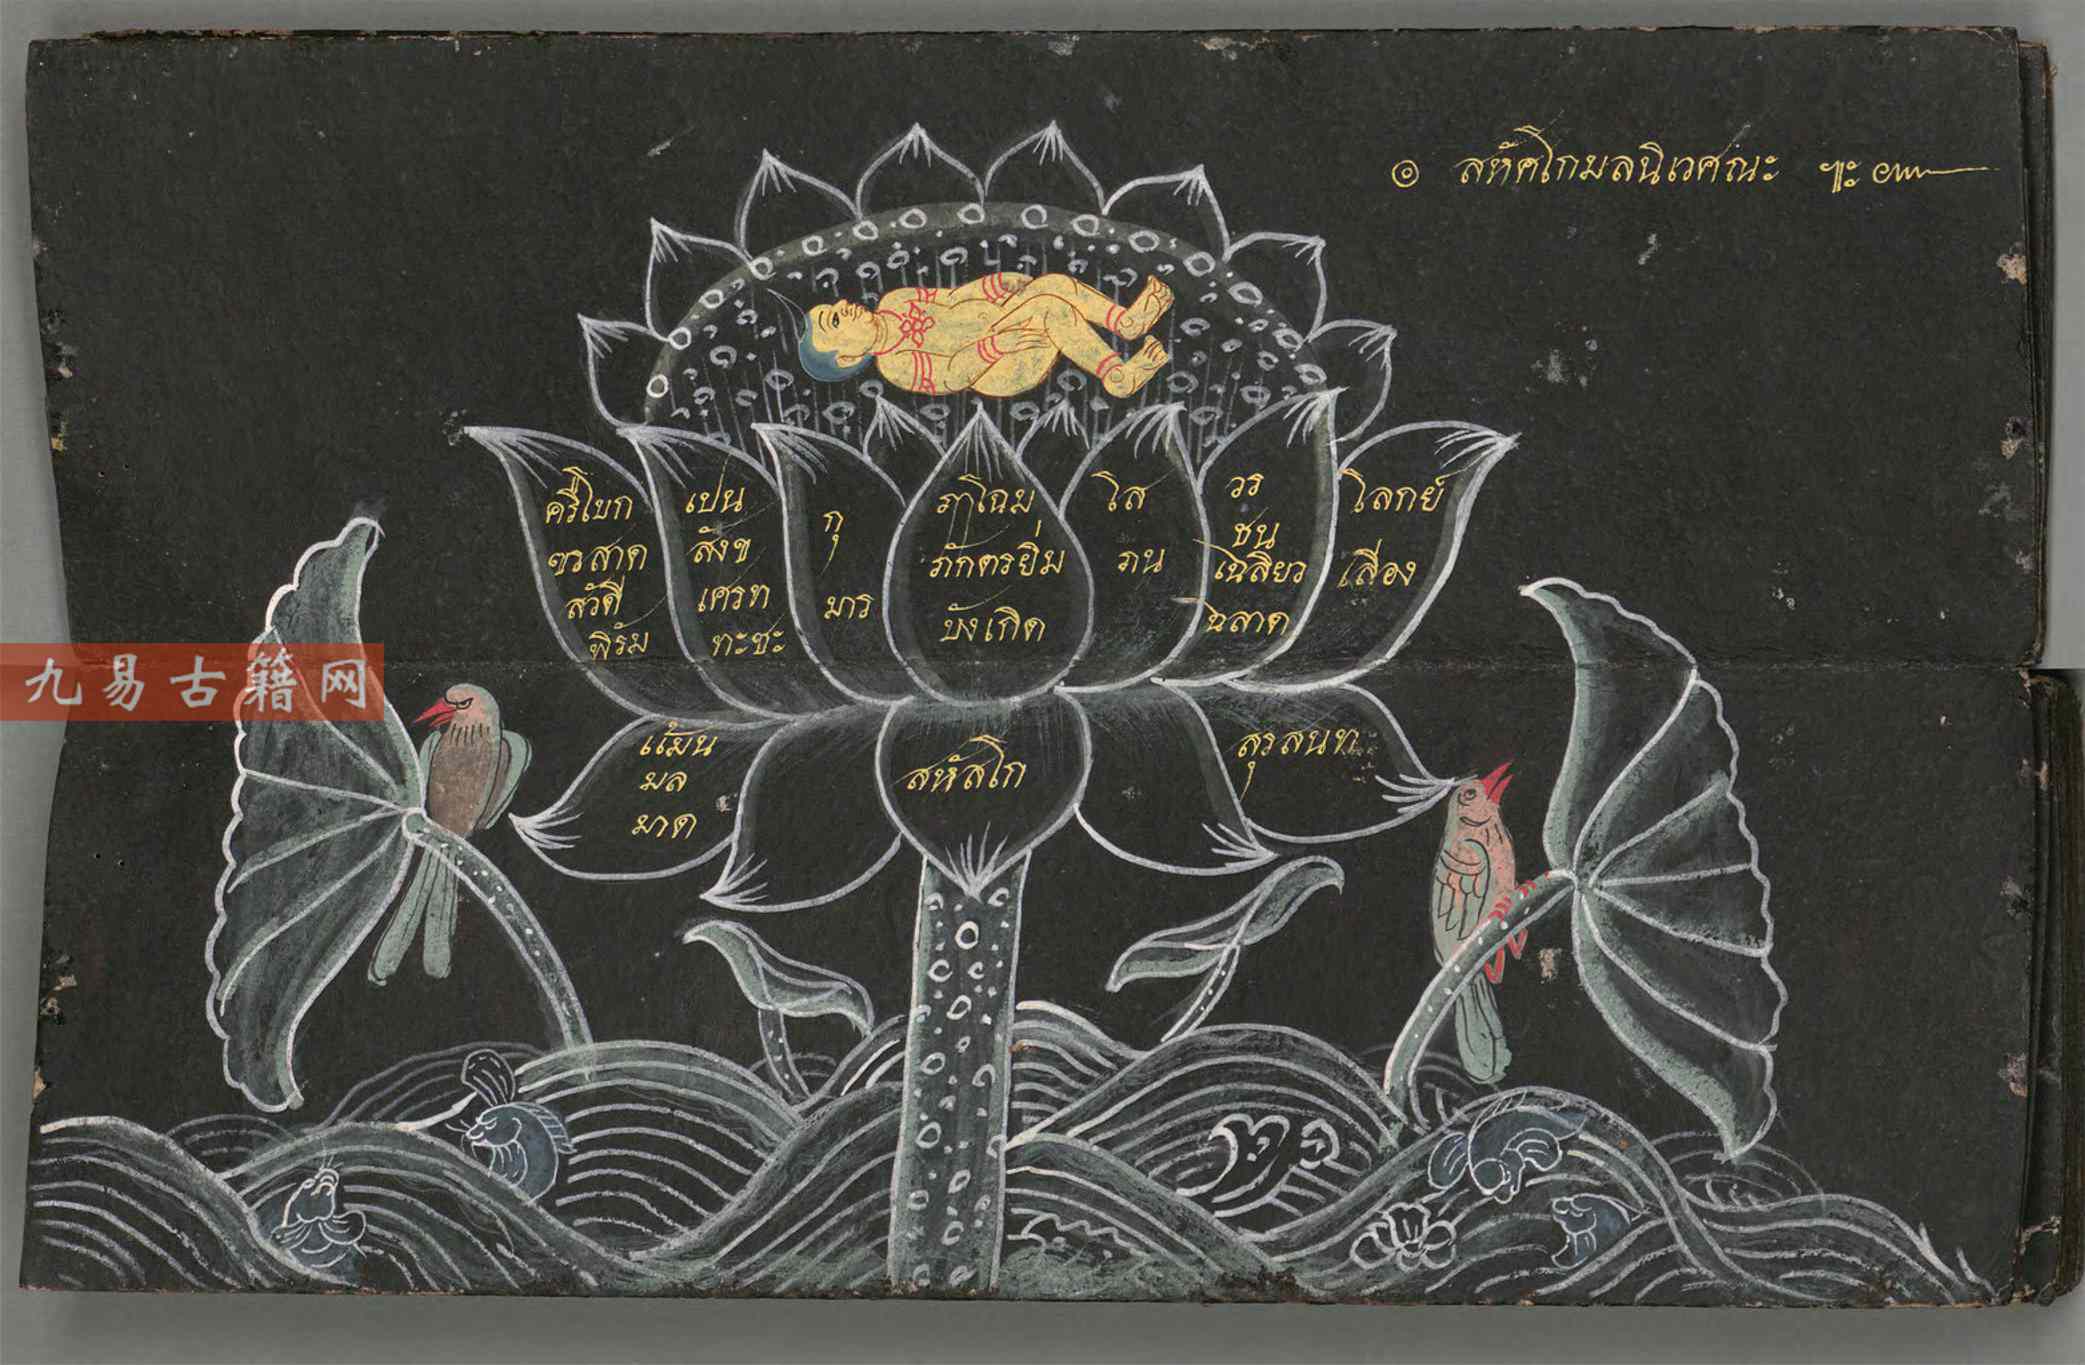 ๏ สหัศโกมลนิเวศณะ ฯะ๛
ศรีโบก
ขรสาด
สวัดี
พิรัม
เปน
สังข
เศรท
ทะชะ
กุ
มาร
ภาโฉม
ภักตรยิ่ม
บังเกิด
โส
ภน
วร
ชน
เฉลียว
ฉลาด
โลกย์
เลื่อง
แม้น
มล
มาด
สหัสโก
สุรสนท
九易古籍网